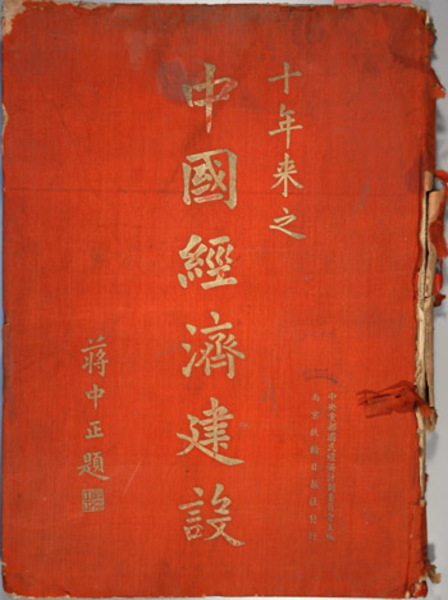 十年来之
中國經濟建設
中央黨部國民經濟計劃委員會主編
南京扶輪日報社發行
蔣中正題